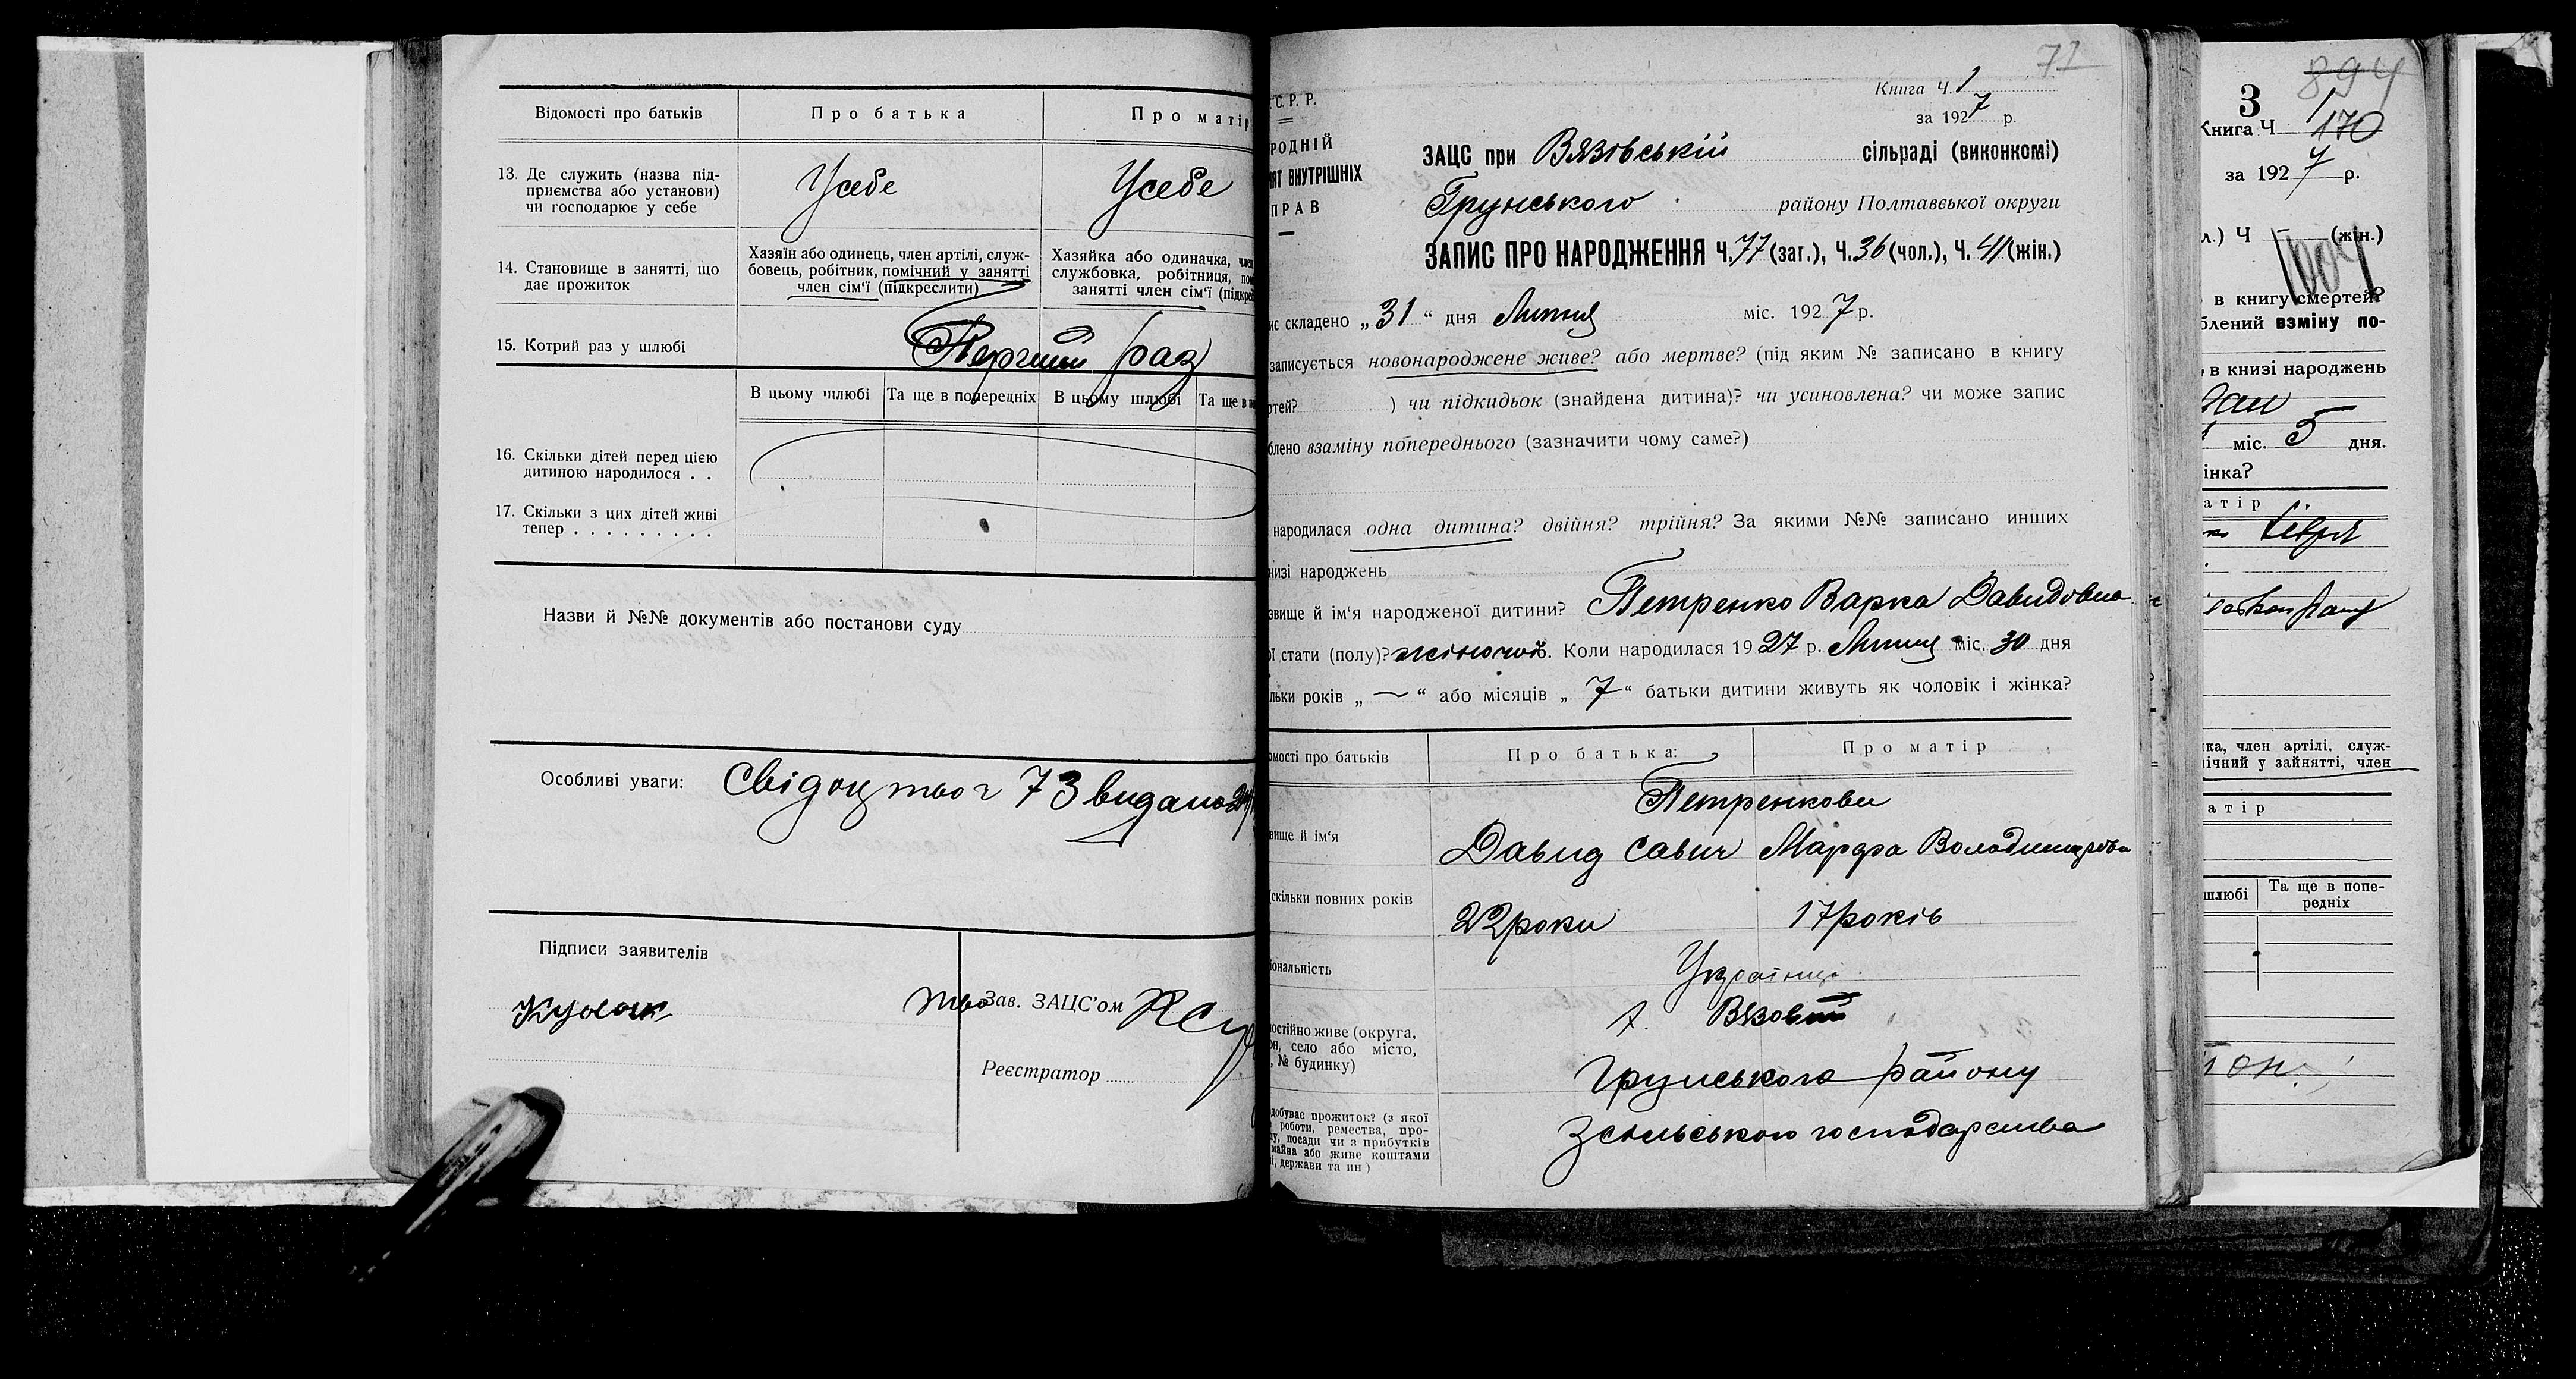 Відомості про батьків
Про батька
Про матір
13. Де служить (назва під-
приємства або установи)
чи господарює у себе
Усебе
Усебе
14. Становище в занятті, що
дає прожиток
Хазяїн або одинець, член артілі, служ-
бовець, робітник, помічний у занятті
член сім'ї (підкреслити)
Хазяйка або одиначка, член
службовка, робітниця, пом
занятті член сім'ї (підкре
15. Котрий раз у шлюбі
Перший раз
В цьому шлюбі
Та ще в попередніх
В цьому шлюбі
Та ще в по
16. Скільки дітей перед цією
дитиною народилося . .
17. Скільки з цих дітей живі
тепер . . . . . . . . .
Назви й №№ документів або постанови суду
Особливі уваги:
Свідоцтво 73 видано
Підписи заявителів
Зав. ЗАЦС'ом
Реєстратор
71
Книга Ч. 1
за 1927 р.
.С. Р. Р.
РОДНІЙ
ІЯТ ВНУТРІШНІХ
ПРАВ
ЗАЦС при Вязівській сільраді (виконкомі)
Грунського району Полтавської округи
ЗАПИС ПРО НАРОДЖЕННЯ Ч. 77 (заг.), Ч. 36 (чол.), Ч. 41 (жін.)
ис складено „31“ дня Липня міс. 1927 р.
записується новонароджене живе? або мертве? (під яким № записано в книгу
ртей? ) чи підкидьок (знайдена дитина)? чи усиновлена? чи може запис
блено взаміну попереднього (зазначити чому саме?)
народилася одна дитина? двійня? трійня? За якими №№ записано инших
низі народжень
звище й ім'я народженої дитини? Петренко Варка Давидовна
ої стати (полу)? жіночої. Коли народилася 1927 р. Липня міс. 30 дня
льки років „—“ або місяців „7“ батьки дитини живуть як чоловік і жінка?
омості про батьків
Про батька:
Про матір
Петренкови
вище й ім'я
Давид Савич
Марфа Володимирова
скільки повних років
22 роки
17 років
іональність
Українці
остійно живе (округа,
он, село або місто,
, № будинку)
х. Вязовий
Грунського району
добуває прожиток? (з якої
роботи, ремества, про-
у, посади чи з прибутків
майна або живе коштами
і, держави та ин)
З сільського господарства
894
3
Книга Ч 1
170
за 1927 р.
л.) Ч (жін.)
в книгу смертей?
блений взміну по-
, в книзі народжень
міс. 5 дня.
інка?
атір
ка, член артілі. служ-
мічний у зайнятті, член
атір
шлюбі
Та ще в попе-
редніх